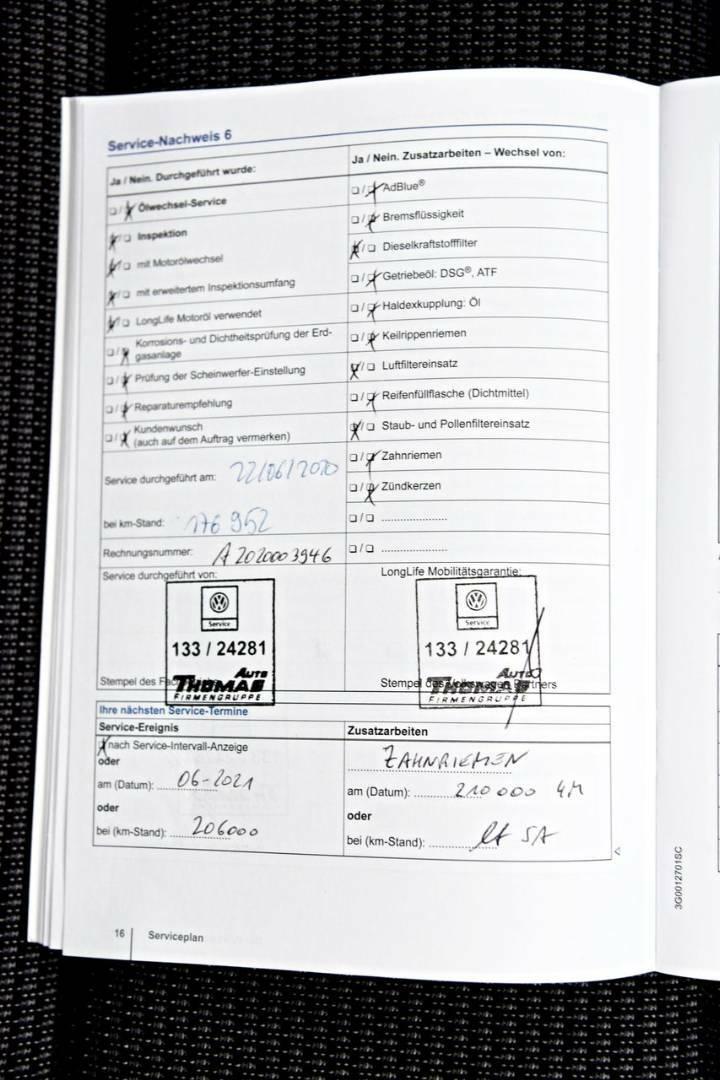 Service-Nachweis 6
Ja / Nein. Durchgeführt wurde:
Ölwechsel-Service
Inspektion
mit Motorölwechsel
mit erweitertem Inspektionsumfang
LongLife Motoröl verwendet
Korrosions- und Dichtheitsprüfung der Erd-
gasanlage
Prüfung der Scheinwerfer-Einstellung
Reparaturempfehlung
Kundenwunsch
(auch auf dem Auftrag vermerken)
Service durchgeführt am: 22/06/2020
bei km-Stand: 176 952
Rechnungsnummer: A 202000 3946
Ja / Nein. Zusatzarbeiten – Wechsel von:
AdBlue®
Bremsflüssigkeit
Dieselkraftstofffilter
Getriebeöl: DSG®, ATF
Haldexkupplung: Öl
Keilrippenriemen
Luftfiltereinsatz
Reifenfüllflasche (Dichtmittel)
Staub- und Pollenfiltereinsatz
Zahnriemen
Zündkerzen
Service durchgeführt von:
Service
133 / 24281
AUTO
THOMAS
FIRMENGRUPPE
Stempel des
LongLife Mobilitätsgarantie:
Service
133 / 24281
AUTO
THOMAS
FIRMENGRUPPE
Stempel des Volkswagen Partners
Ihre nächsten Service-Termine
Service-Ereignis
nach Service-Intervall-Anzeige
oder
am (Datum): 06-2021
oder
bei (km-Stand): 206000
Zusatzarbeiten
ZAHNRIEMEN
am (Datum): 210 000 KM
oder
bei (km-Stand): 5A
3G0012701SC
16 Serviceplan